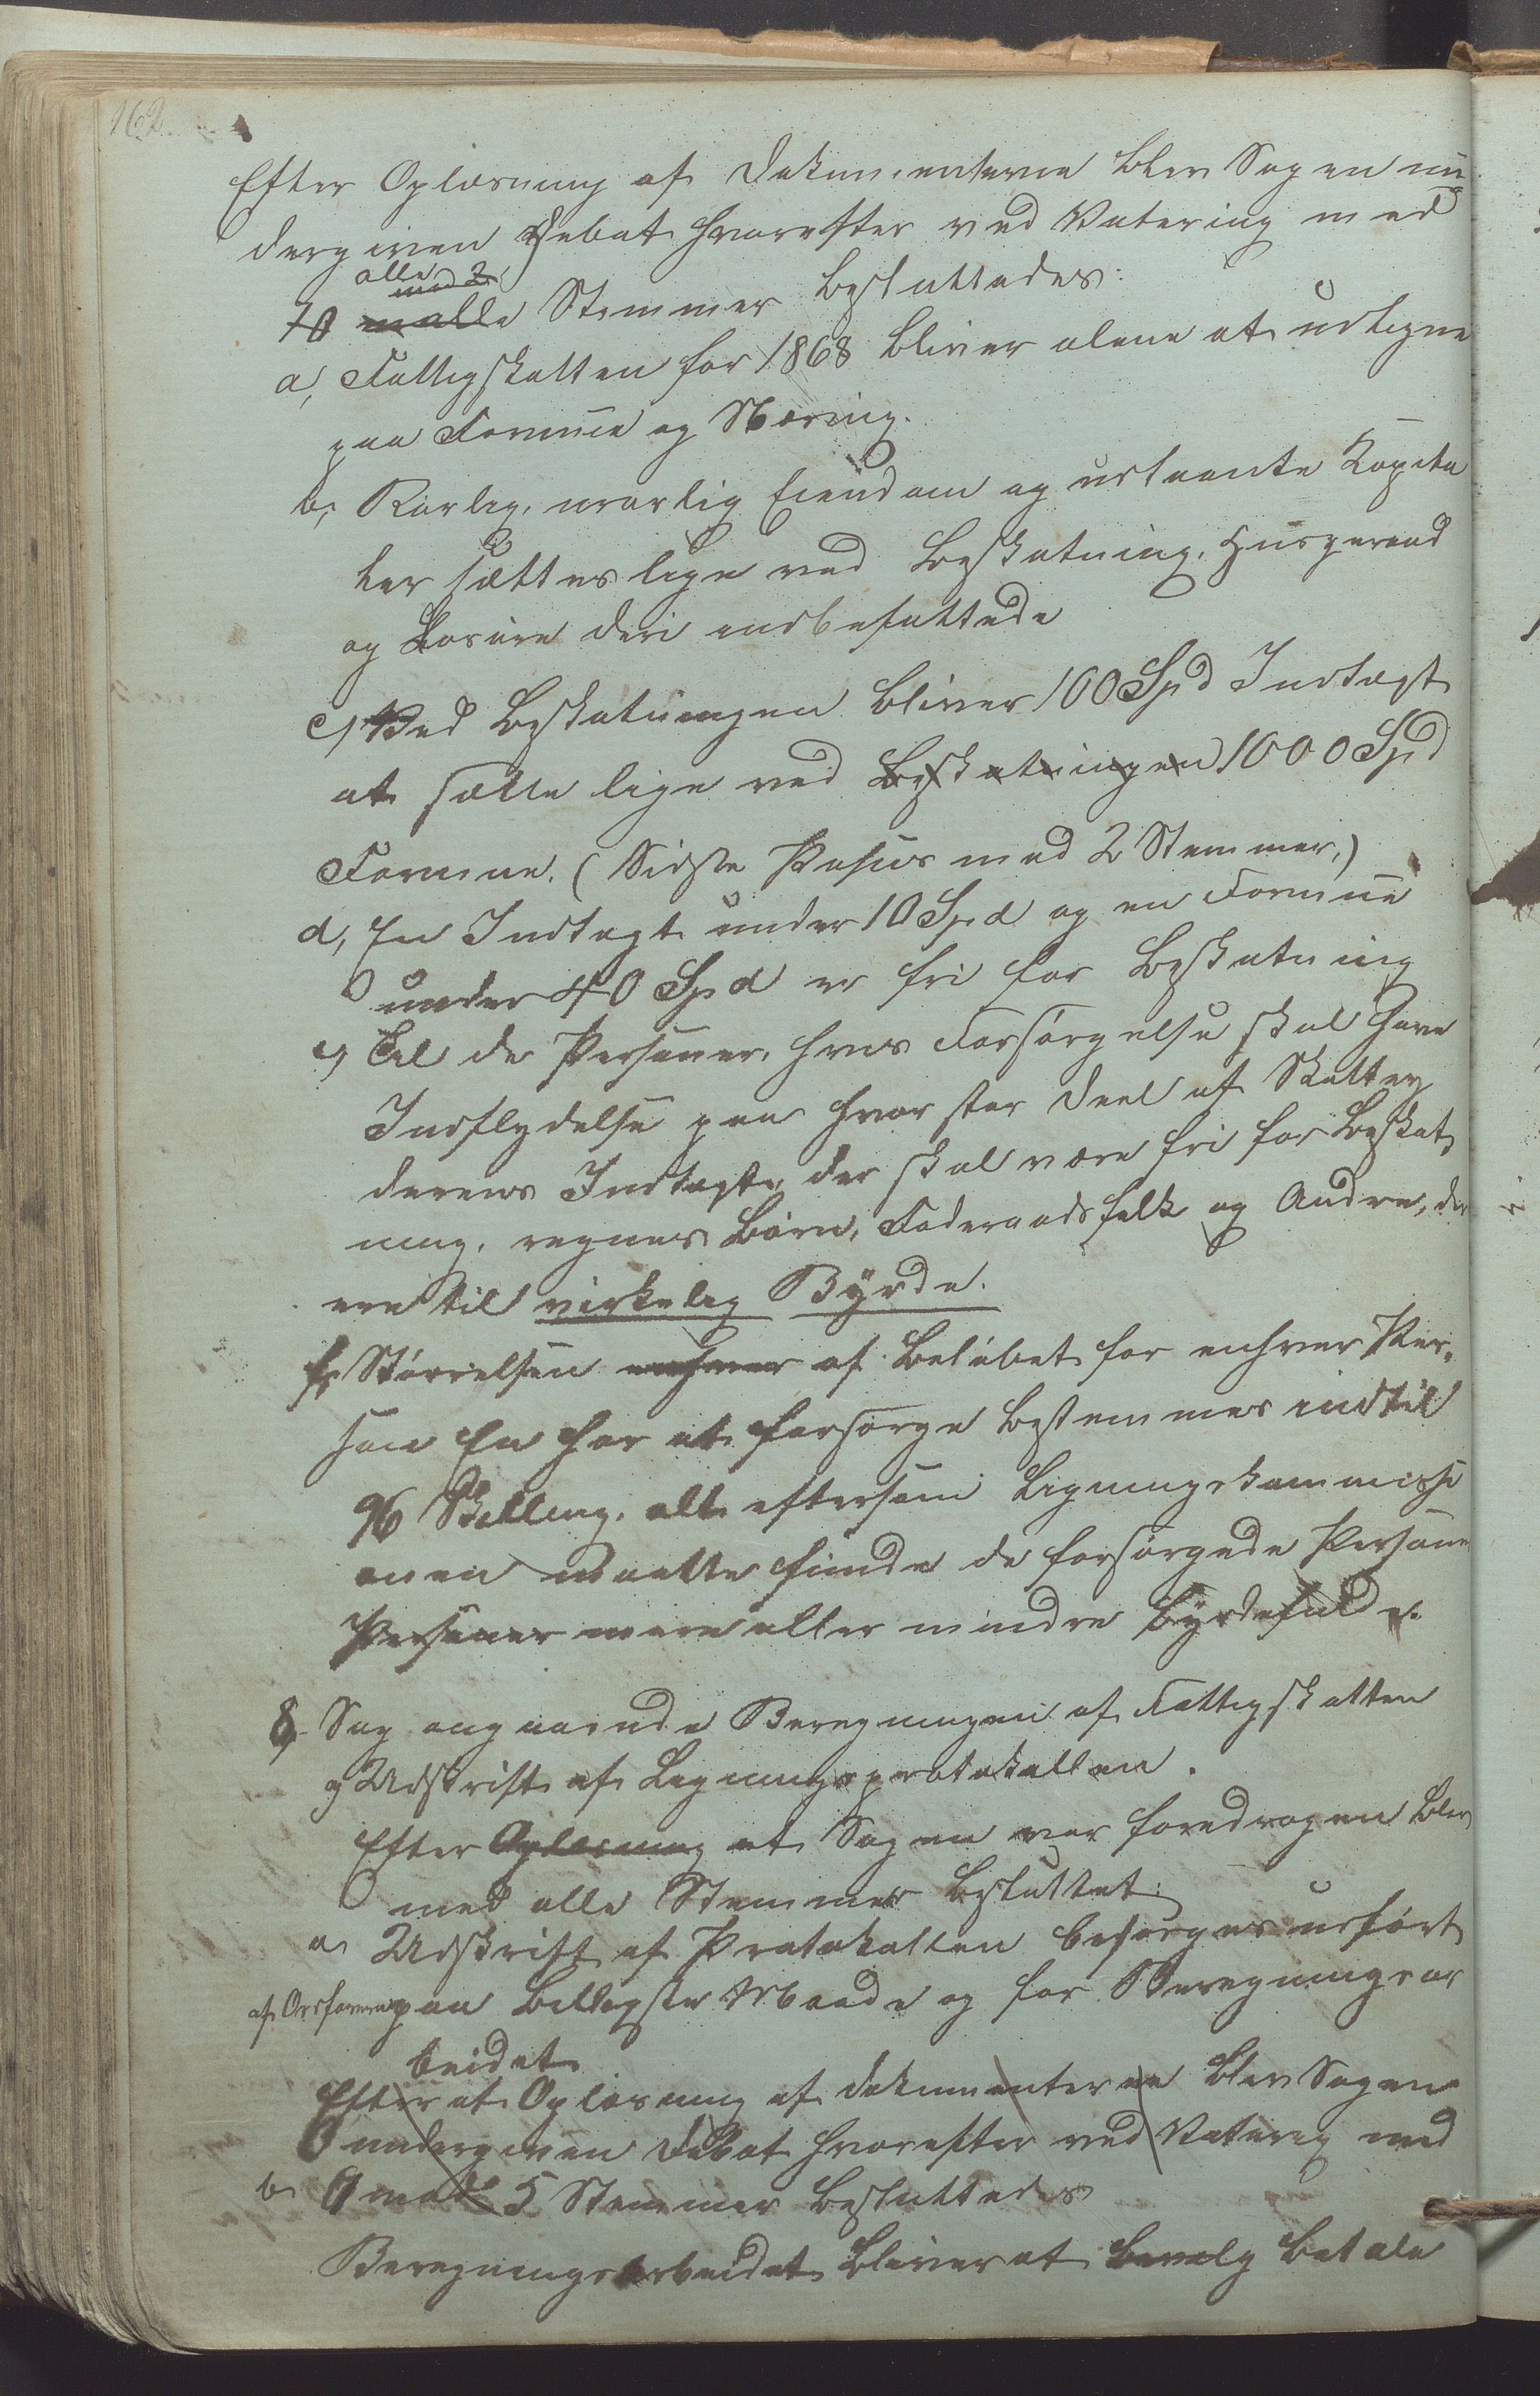 162
Efter Oplæsning af Dokumenterne blev Sagen un
dergiven Debat hvorefter ved Votering med
alle
mod 2
10 m alle Stemmer besluttedes:
a, Fattigskatten for 1868 bliver alene at udligne
paa Formue og Næring.
b, Rørlig, urørlig Eiendom og udlaante Kapita
ler sættes lige ved Beskatning, Husgeraad
og Løsøre deri indbefattede
c, Ved Beskatningen bliver 100 Spd Indtægt
at sætte lige ved Beskatningen 1000 Spd
Formue. (Sidste Passus mod 2 Stemmer.)
d, En Indtægt under 10 Spd og en Formue
under 40 Spd er fri for Beskatning
e, Til de Personer, hvis Forsørgelse skal have
Indflydelse paa hvor stor Deel af Skattey
derens Indtægt, der skal være fri for Beskat
ning, regnes Børn, Føderaadsfolk og Andre, der
ere til virkelig Byrde.
f, Størrelsen enhver af Beløbet for enhver Per-
son En har at forsørge bestemmes indtil
96 Skilling, alt eftersom Ligningskommissi
onen maatte finde de forsørgede Persone
Personer mere eller mindre byrdefulde.
8, Sag angaaende Beregningen af Fattigskatten
og Udskrift af Ligningsprotokollen.
Efter Oplæsning at Sagen var foredragen blev
med alle Stemmer besluttet:
a, Udskrift af Protokollen besørges udført
af Ordføreren paa billigste Maade og for Beregningsar
beidet
Efter at Oplæsning af Dokumenterne blev Sagen
undergiven Debat hvorefter ved Votering med
b, 9 mod 5 Stemmer besluttedes
Beregningsarbeidet bliver at bevilg betale